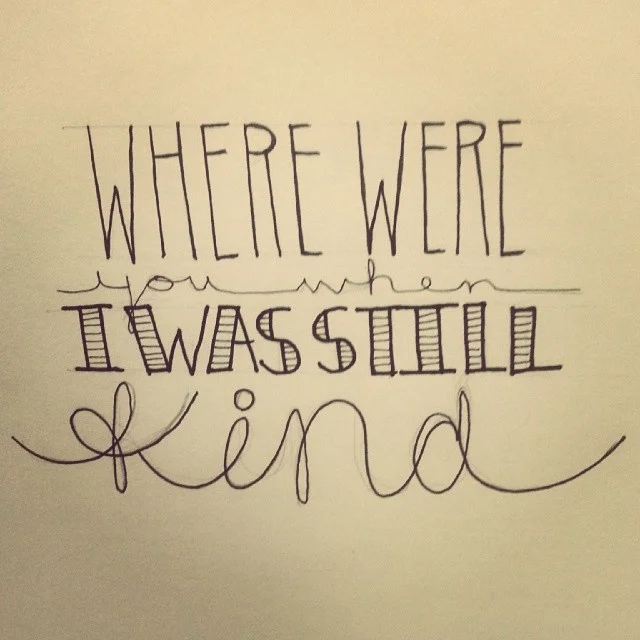 WHERE WERE
you when
I WAS STILL
kind